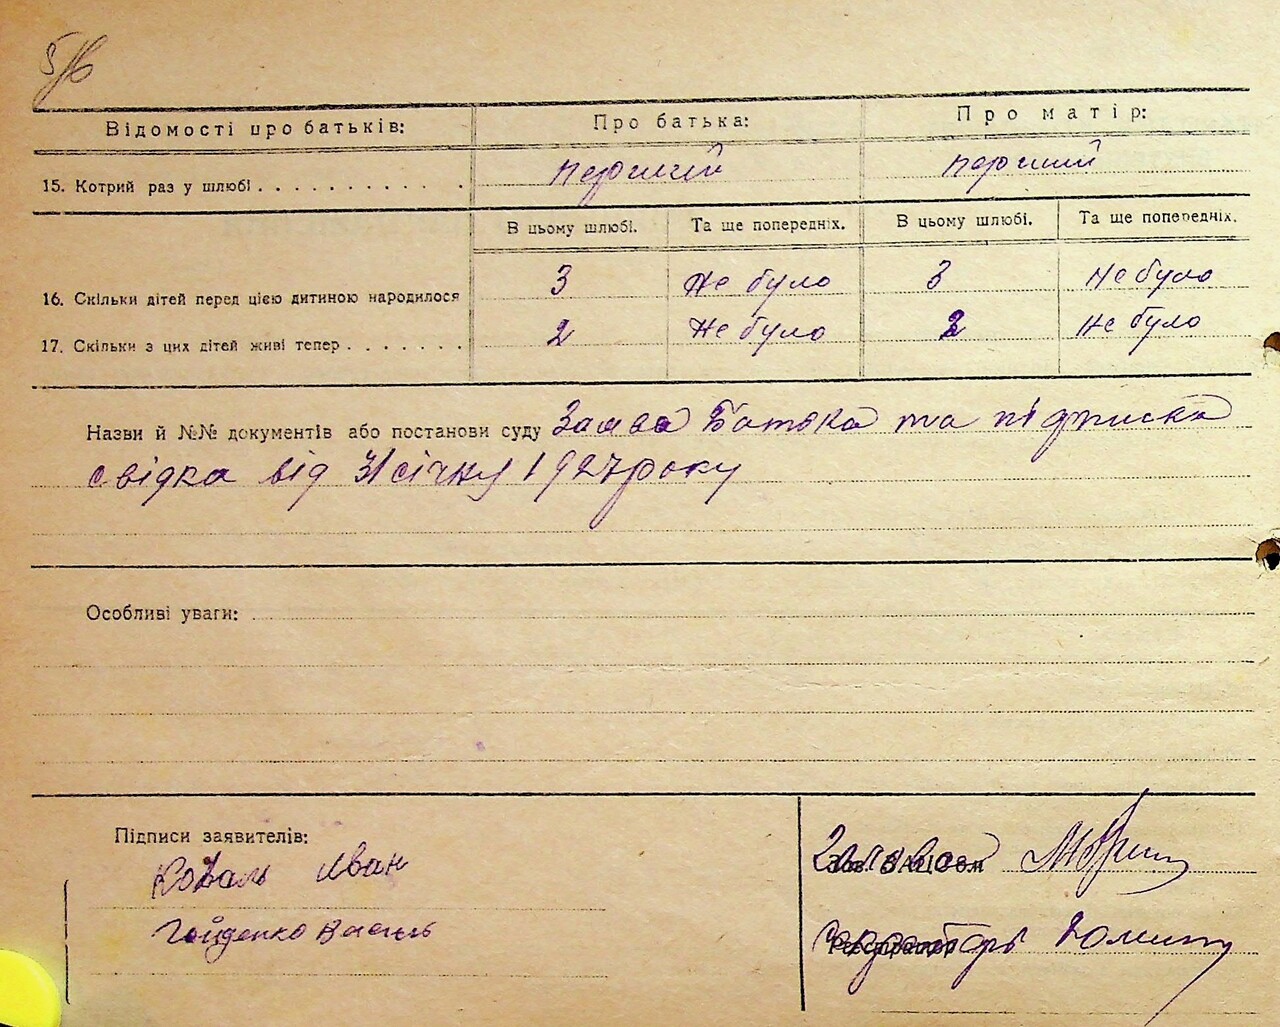 5/6
Відомості про батьків: Про батька: Про матір:
15. Котрий раз у шлюбі . . . . . . . . . . . перший перший
В цьому шлюбі. Та ще попередніх. В цьому шлюбі. Та ще попередніх.
16. Скільки дітей перед цією дитиною народилося 3 Не було 3 Не було
17. Скільки з цих дітей живі тепер . . . . . . . 2 Не було 2 Не було
Назви й №№ документів або постанови суду Заява Батька та підписка
свідка від 31 січня 1927 року
Особливі уваги:
Підписи заявителів:
Коваль Іван
Гайденко Василь
Голова
Зав. ЗАЦСом
Секретарь
Реєстратор